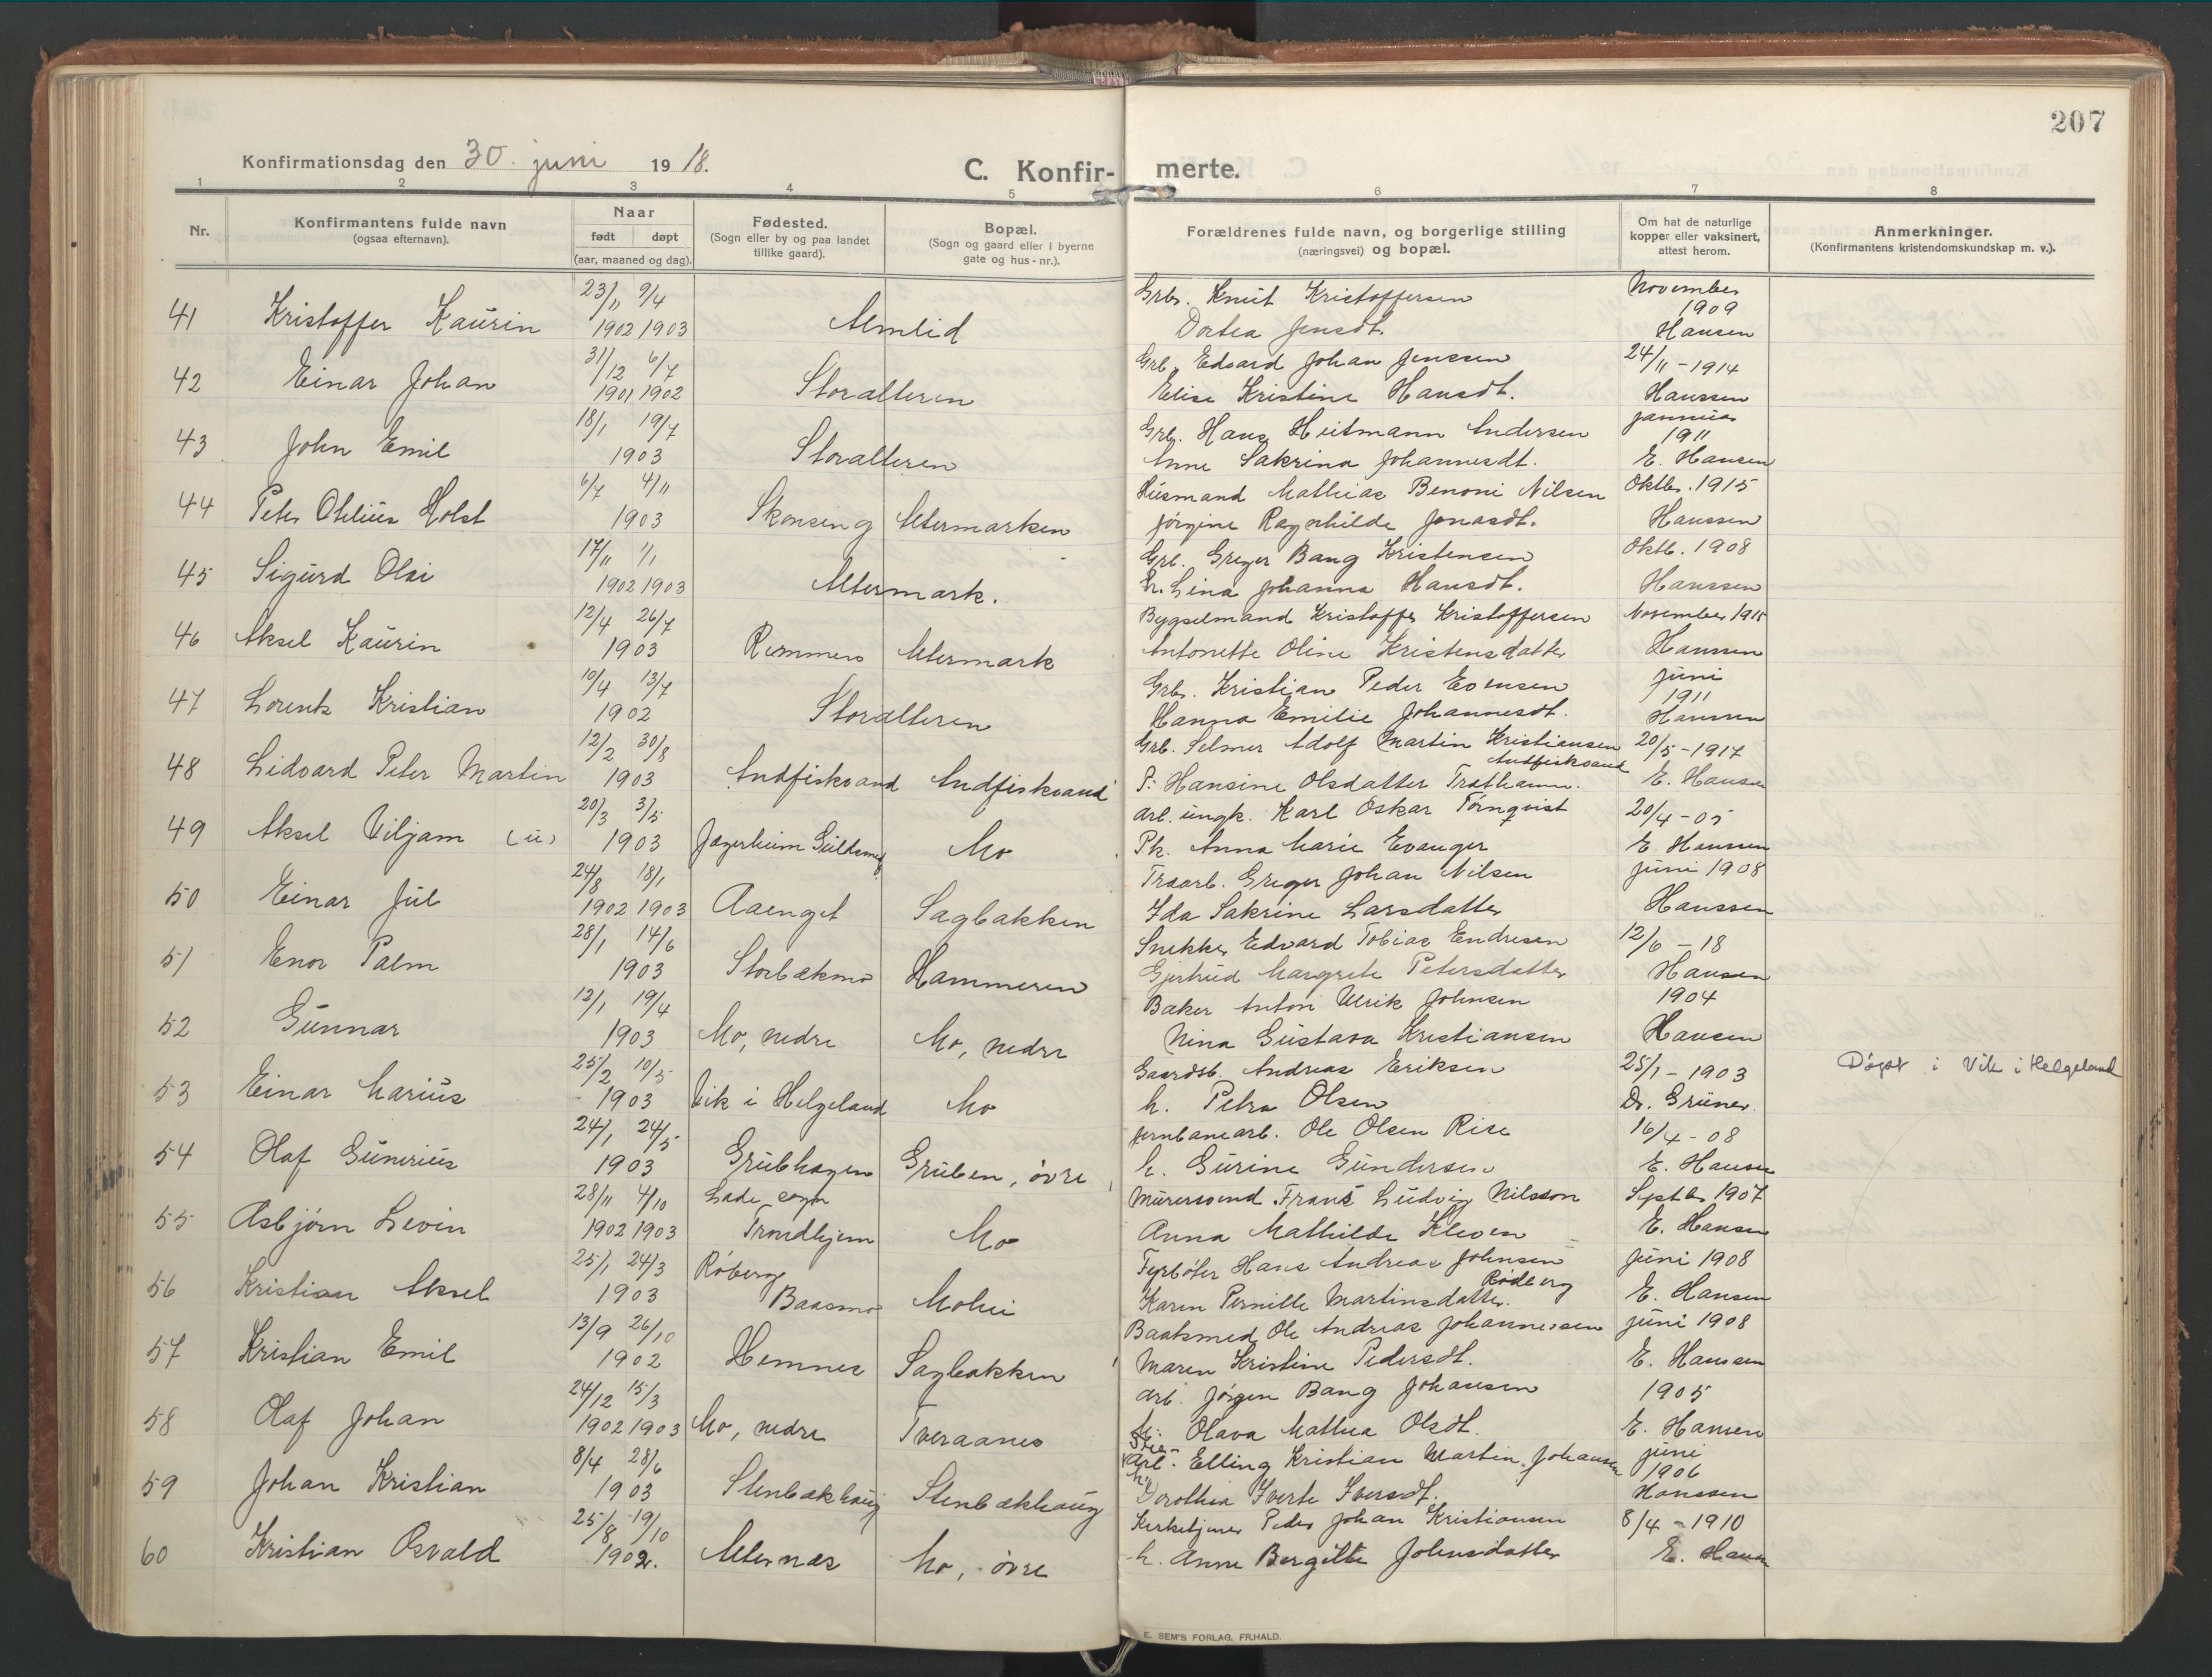 207
Konfirmationsdag den 30. juni 1918.
C. Konfir- merte.
1 2 3 4 5 6 7 8
Nr.
Konfirmantens fulde navn
(ogsaa efternavn).
Naar
født døpt
(aar, maaned og dag).
Fødested.
(Sogn eller by og paa landet
tillike gaard).
Bopæl.
(Sogn og gaard eller i byerne
gate og hus-nr.).
Forældrenes fulde navn, og borgerlige stilling
(næringsvei) og bopæl.
Om hat de naturlige
kopper eller vaksinert,
attest herom.
Anmerkninger.
(Konfirmantens kristendomskundskap m. v.).
41 Kristoffer Kaurin 23/11 1902 9/4 1903 Almlid
Grbr. Knut Kristoffersen
Dortea Jensdt.
November
1909
Hansen
42 Einar Johan 31/12 1901 6/7 1902 Storalteren
Grb. Edvard Johan Jenssen
Elise Kristine Hansdt.
24/11-1914
Hanssen
43 John Emil 18/1 19/7 1903 Storalteren
Grb. Hans Heitmann Andersen
Anne Sakrina Johannesdt.
januar
1911
E. Hansen
44 Peter Otelius Holst 6/7 4/11 1903 Skonseng Altermarken
Husmand Mathias Benoni Nilsen
Jørgine Ragnhilde Jonasdt.
Oktbr. 1915
Hanssen
45 Sigurd Olai 17/11 1902 1/1 1903 Altermark.
Grb. Greger Bang Kristensen
h. Lina Johanna Hansdt.
Oktb. 1908
Hanssen
46 Aksel Kaurin 12/4 26/7 1903 Remmen Altermark
Bygselmand Kristoffer Kristoffersen
Antonette Oline Kristensdatter
November 1915
Hanssen
47 Lorents Kristian 10/4 13/7 1902 Storalteren
Grbr. Kristian Peder Evensen
Hanna Emilie Johannesdt.
juni
1911
Hanssen
48 Lidvard Peter Martin 12/2 30/8 1903 Andfiskvand Andfiskvand
Grb. Selmer Adolf Martin Kristiansen
Andfiskvand
P. Hansine Olsdatter
20/5-1917
E. Hansen
49 Aksel Viljam (u) 20/3 3/5 1903 Jægerheim Guldsmed Mo
arb. ungk. Karl Oskar Törnqvist
Pk. Anna Marie Evanger
20/4-05
E. Hanssen
50 Einar Jul 24/8 1902 18/1 1903 Aaenget Sagbakken
Traarb. Greger Johan Nilsen
Ida Sakrine Larsdatter
juni 1908
Hanssen
51 Enor Palm 28/1 14/6 1903 Storbækmo Hammeren
Snekker Edvard Tobias Endresen
Gjertrud Margrete Petersdatter
12/6-18
Hansen
52 Gunnar 12/1 19/4 1903 Mo, nedre Mo, nedre
Baker Anton Ulrik Johnsen
Nina Gustava Kristiansen
1904
Hansen
53 Einar Marius 25/2 10/5 1903 Vik i Helgeland Mo
Gaardsb. Andreas Eriksen
h. Petra Olsen
25/1-1903
Dr. Grüner.
Døpt i Vik i Helgeland
54 Olaf Gunerius 24/1 24/5 1903 Grubhagen Gruben, övre
Jernbanearb. Ole Olsen Rise
h. Gurine Gundersen
16/4-08
E. Hansen
55 Asbjørn Levin 28/11 1902 4/10 1903 Lade sogn Trondhjem Mo
Murersvend Frans Ludvig Nilsson
Anna Mathilde Kleven
Septbr 1907
E. Hansen
56 Kristian Aksel 25/1 24/3 1903 Røberg Baasmo Mohei
Fyrbøter Hans Andreas Johnsen
Rødberg
Karen Pernille Martinsdatter.
juni 1908
E. Hansen
57 Kristian Emil 13/9 26/10 1902 Hemnes Sagbakken
Baatsmed Ole Andreas Johannessen
Maren Kristine Pedersdt.
juni 1908
E. Hanssen
58 Olaf Johan 24/12 1902 15/3 1903 Mo, nedre Tveraanes
arb. Jørgen Bang Johansen
h. Olava Mathea Olsdt.
1905
E. Hansen
59 Johan Kristian 8/4 28/6 1903 Stenbækhaug Stenbækhaug
arb. Elling Kristian Martin Johansen
h. Dorothea Iverte Iversdt.
juni
1906
Hanssen
60 Kristian Osvald 25/8 19/10 1902. Alternæs Mo, övre
Kirketjener Peder Johan Kristiansen
h. Anne Bergitte Johnsdatter
8/4-1910
E. Hansen
E. SEM'S FORLAG, FR.HALD.